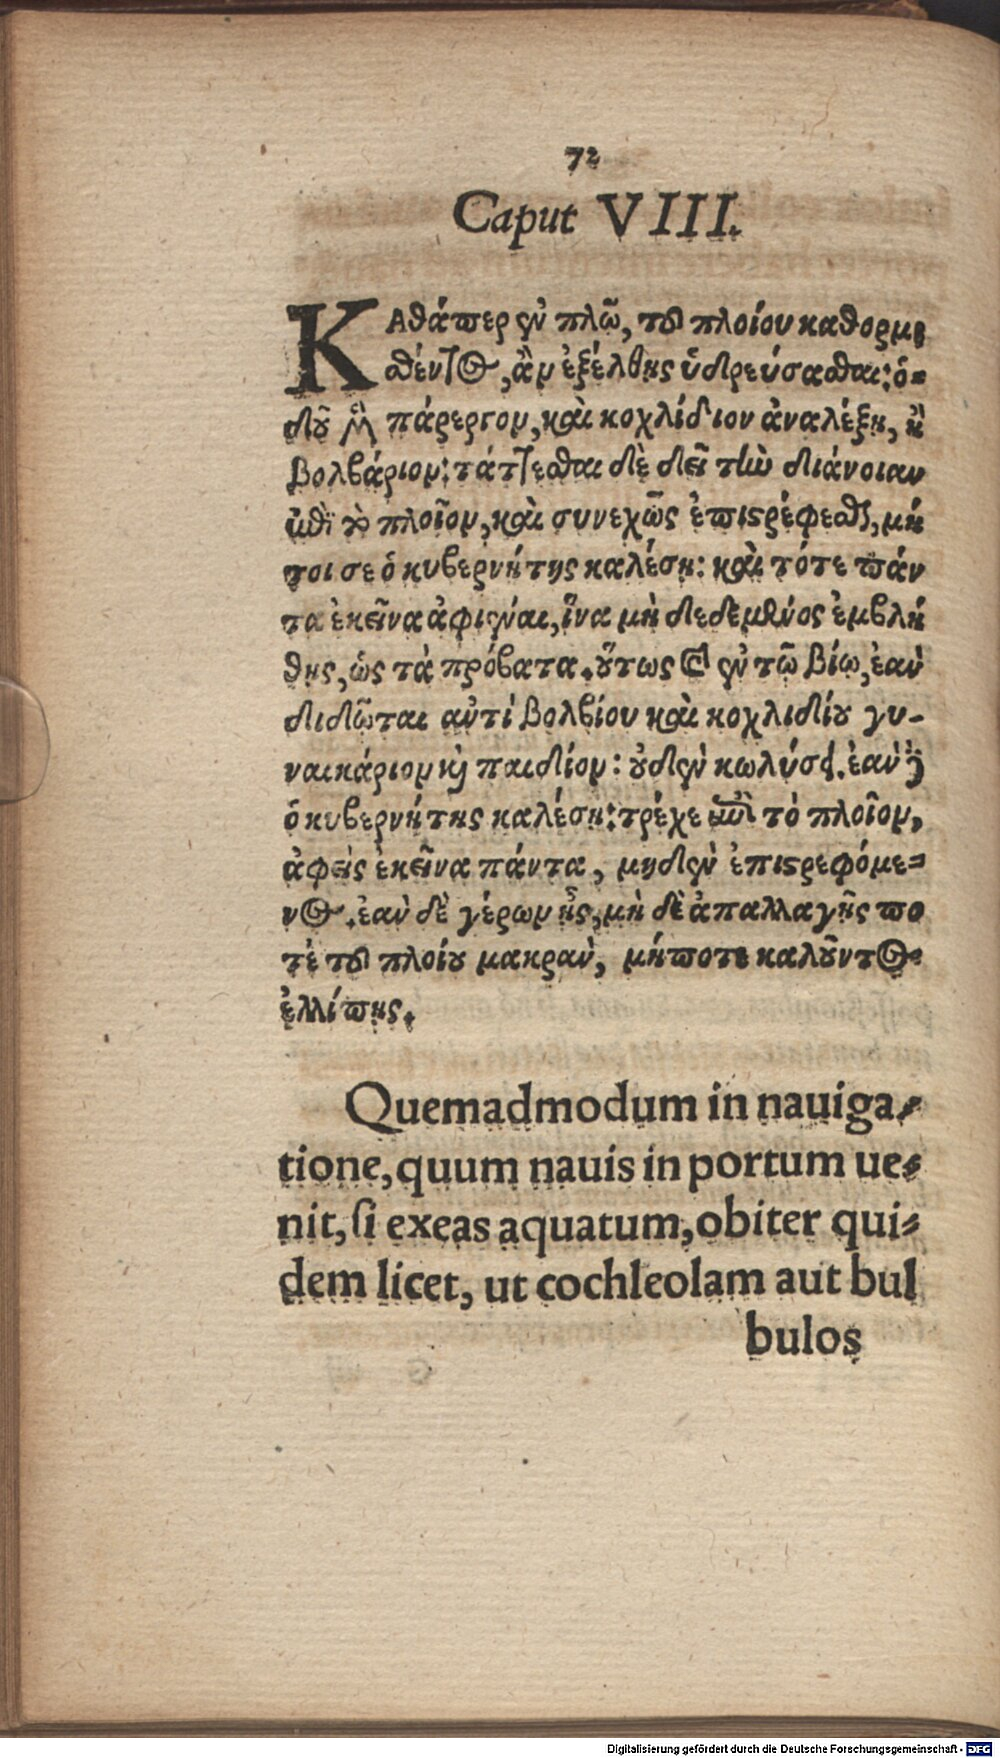 72
Caput VIII.
ΚΑθάπερ ἐν πλῷ, τοῦ πλοίου καθορμι
σθέντος, ἂν ἐξέλθῃς ὑδρεύσασθαι: ὁ-
δοῦ μὲν πάρεργον, καὶ κοχλίδιον ἀναλέξῃ, ἢ
βολβάριον: τάττεσθαι δὲ δεῖ τὴν διάνοιαν
ἐπὶ τὸ πλοῖον, καὶ συνεχῶς ἐπιστρέφεσθαι, μή
τοι σε ὁ κυβερνήτης καλέσῃ: καὶ τότε πάν
τα ἐκεῖνα ἀφιέναι, ἵνα μὴ δεδεμένος ἐμβλη
θῇς, ὡς τὰ πρόβατα. οὕτως καὶ ἐν τῷ βίῳ, ἐὰν
διδῶται ἀντὶ βολβίου καὶ κοχλιδίου γυ-
ναικάριον καὶ παιδίον: οὐδὲν κωλύσει. ἐὰν δὲ
ὁ κυβερνήτης καλέσῃ: τρέχε ἐπὶ τὸ πλοῖον,
ἀφεὶς ἐκεῖνα πάντα, μηδὲν ἐπιστρεφόμε-
νος. ἐὰν δὲ γέρων ᾖς, μὴ δὲ ἀπαλλαγῇς πο
τὲ τοῦ πλοίου μακρὰν, μήποτε καλοῦντος
ἐλλίπῃς.
Quemadmodum in nauiga-
tione, quum nauis in portum ue-
nit, ſi exeas aquatum, obiter qui-
dem licet, ut cochleolam aut bul
bulos
Digitalisierung gefördert durch die Deutsche Forschungsgemeinschaft - DFG